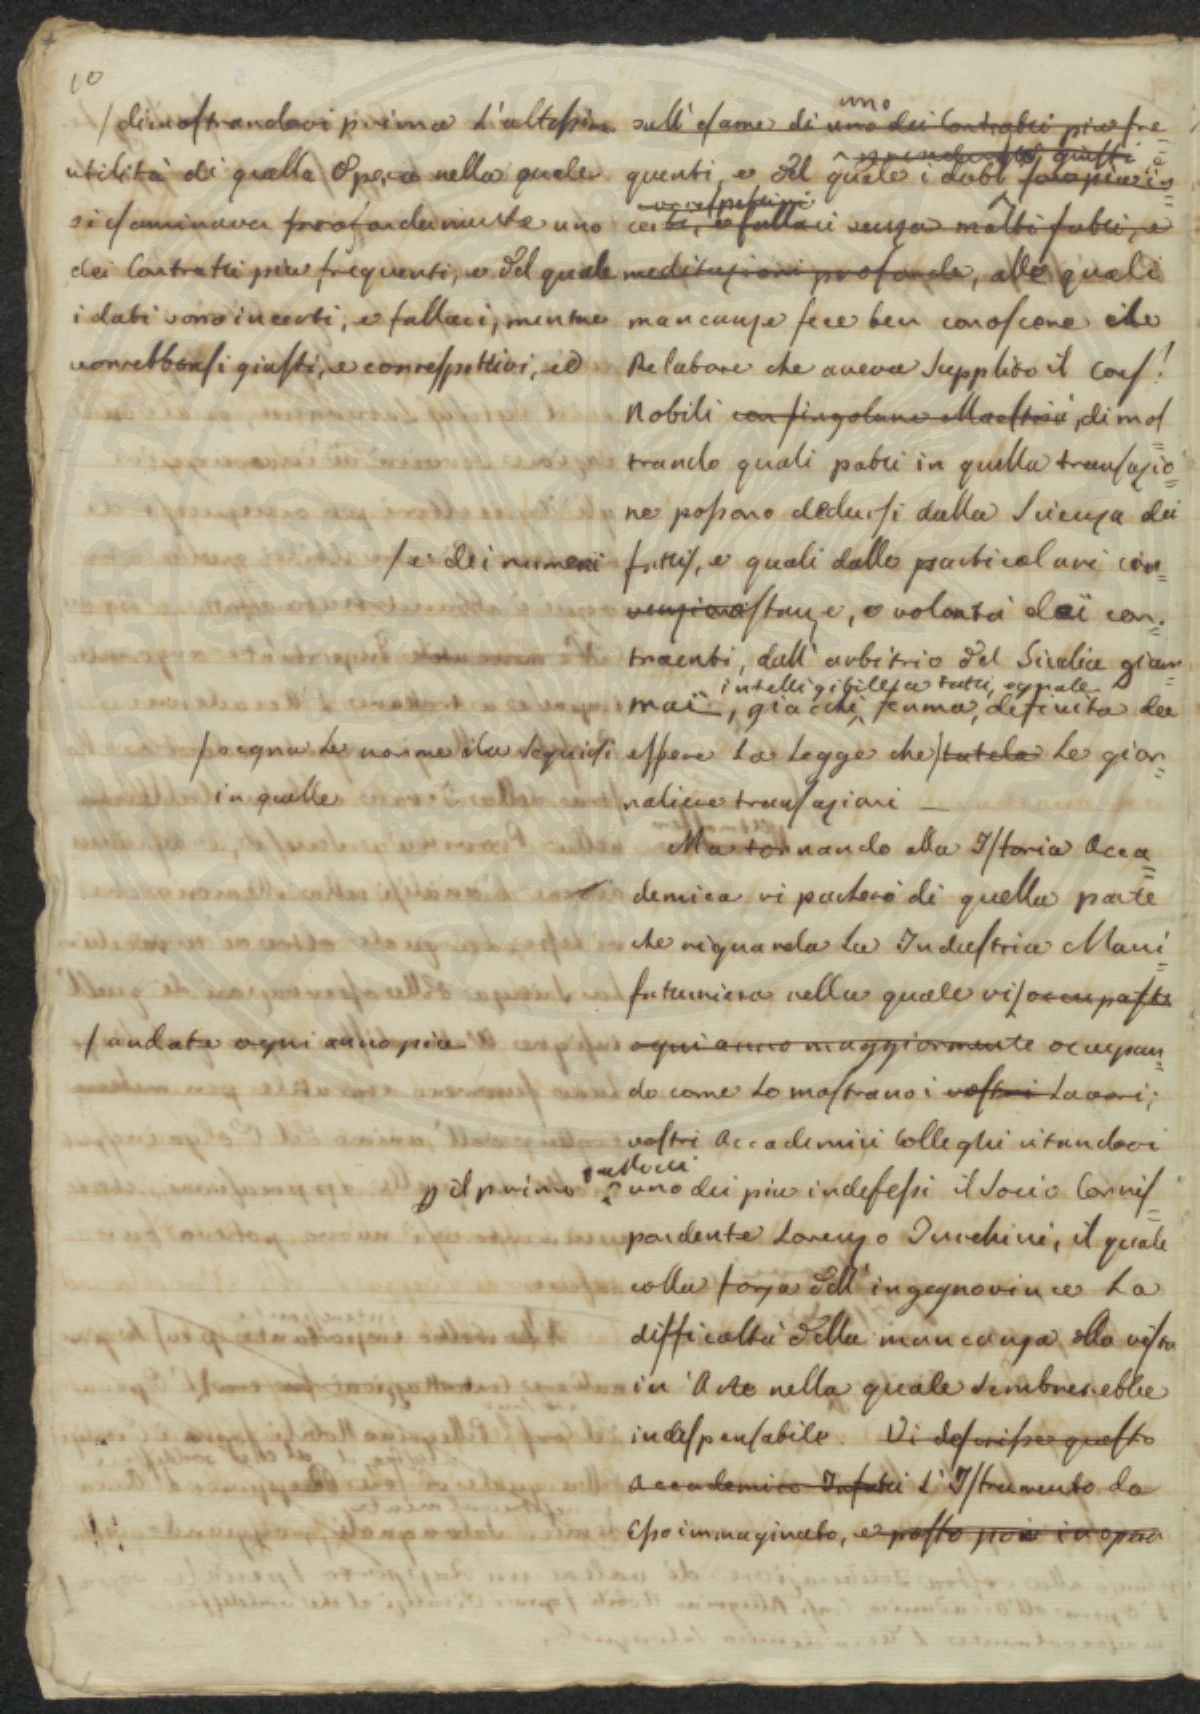 10
/ dimostrandovi prima l'altissima
utilità di quella Opera nella quale
si esaminava profondamente uno
dei Contratti piu frequenti, e del quale
i dati sono incerti, e fallaci, mentre
vorrebbonsi giusti, e correspettivi, ed
/ e dei numeri
/ segna le norme da seguirsi
in quelle
/ andate ogni anno piu
p il primo
uno
sull'esame di uno dei Contratti piu fre=
giusti
quenti, e del quale i dati sono piu in=
correspettivi
certi, e fallaci senza molti fatti, e
meditazioni profonde, alle quali
mancanze fece ben conoscere il
Relatore che aveva supplito il Cons.
Nobili con singolare Maestria, dimos=
trando quali patti in quella transazio=
ne possono dedursi dalla Scienza dei
fatti, e quali dalle particolari con=
venzioni stanze, o volontà dei con=
traenti, dall'arbitrio del Giudice giam
intelligibile a tutti, eguale
mai, giacchè ferma, definita dee
essere la Legge che / tutela le gior=
naliere transazioni —
Ma tornando alla Istoria Acca=
demica vi parlerò di quella parte
che riguarda la Industria Mani=
fatturiera nella quale vi / occupaste
ogni anno maggiormente occupan=
do come lo mostrano i vostri Lavori;
vostri Accademici Colleghi citandovi
uno dei piu indefessi il Socio Corris=
pondente Lorenzo Turchini, il quale
colla forza dell'ingegno vince la
difficoltà della mancanza della vista
in Arte nella quale sembrerebbe
indespensabile. Vi descrisse questo
Accademico Infatti l'Istrumento da
Esso immaginato, e posto poi in opera